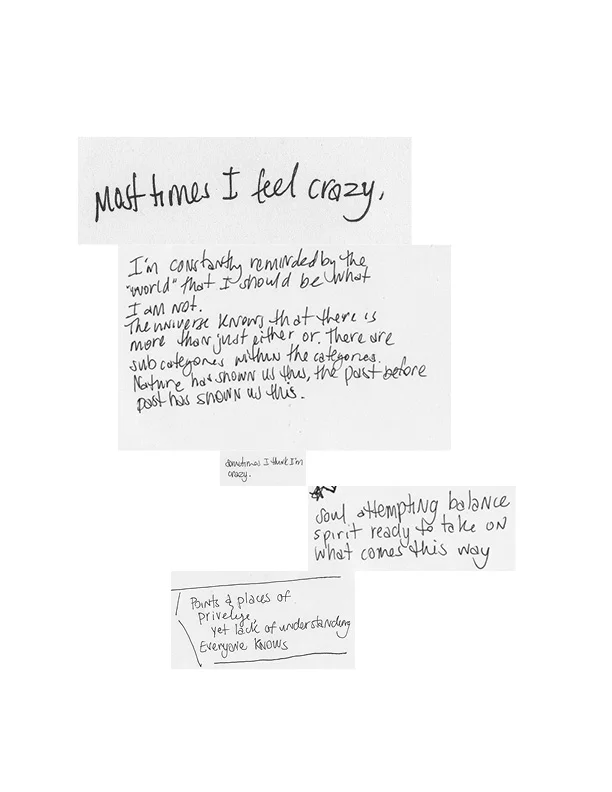 Most times I feel crazy.
I'm constantly reminded by the
"world" that I should be what
I am not.
The universe knows that there is
more than just either or. There are
sub categories within the categories.
Nature has shown us this, the past before
past has shown us this.
sometimes I think I'm
crazy.
soul attempting balance
spirit ready to take on
what comes this way
Points & places of
privelge,
yet lack of understanding
Everyone knows